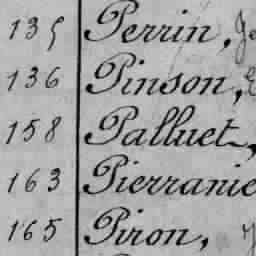 135 Perrin, Je
136 Pinson, E
158 Palluet,
163 Pierranie
165 Piron,